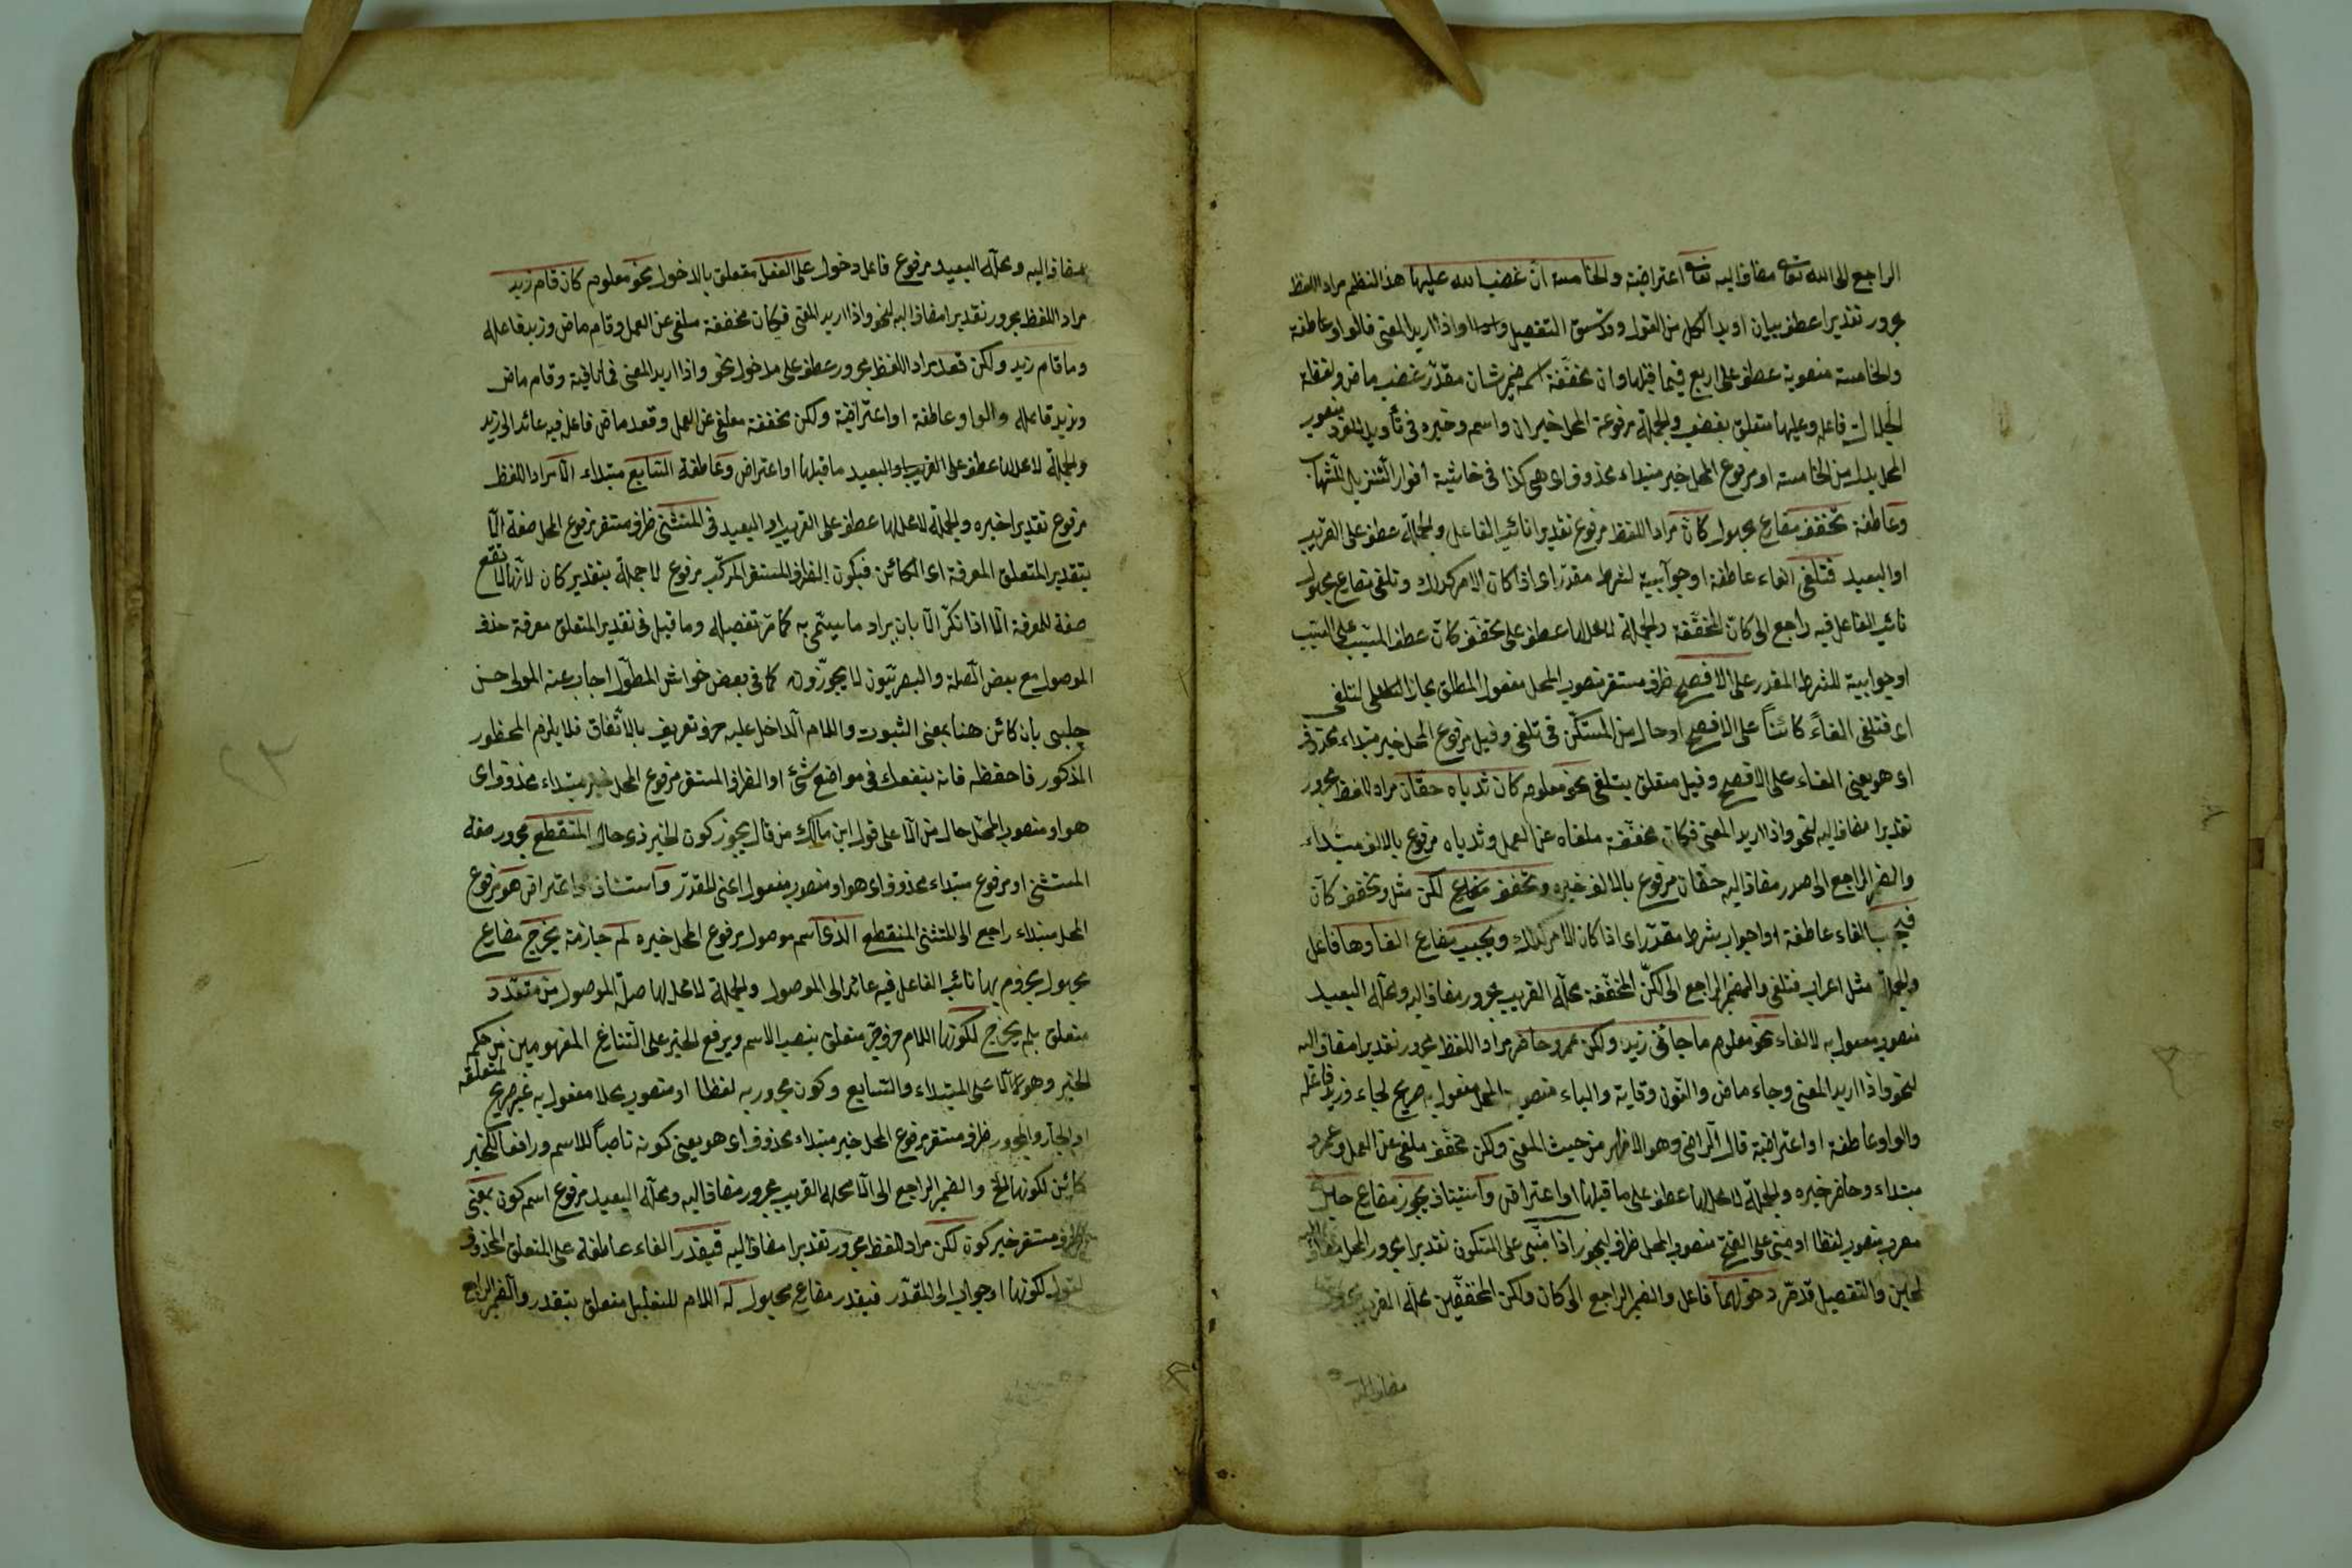 الراجع الى الله تعالى مضاف اليه تعالى اعتراضية والخامسة ان غضب الله عليها هذا النظم مراد اللفظ
مجرور تقديرا عطف بيان او بدل الكل من القول وقد سبق التفصيل واذا اريد المعنى فالواو عاطفة
والخامسة منصوبة عطف على اربع فيما قبلها وان مخففة اسمه ضمير شان مقدر غضب ماض ولفظة
الجلالة فاعله وعليها متعلق بغضب والجملة مرفوعة المحل خبر ان واسمه وخبره في تأويل المفرد منصوب
المحل بدل من الخامسة او مرفوع المحل خبر مبتداء محذوف اى هى كذا في حاشية انوار التنزيل للشهاب
وعاطفة تخفف مضارع مجهول كان مراد اللفظ مرفوع تقديرا نائب الفاعل والجملة عطف على القريب
او البعيد فتلغى الفاء عاطفة او جوابية لشرط مقدر اى اذا كان الامر كذلك وتلغى مضارع مجهول
نائب الفاعل فيه راجع الى كان المخففة والجملة لا محل لها عطف على تخفف كان عطف المسبب على السبب
او جوابية للشرط المقدر على الافصح ظرف مستقر منصوب المحل مفعول المطلق مجازا لتلغى
اى فتلغى الغاء كائنا على الافصح او حال من المستكن في تلغى وقيل مرفوع المحل خبر مبتداء محذوف
اى هو يعنى الغاء على الافصح وقيل متعلق بتلغى نحو معلوم كان ثدياه حقان مراد اللفظ مجرور
تقديرا مضاف اليه لنحو واذا اريد المعنى فكان مخففة ملغاه عن العمل وثدياه مرفوع بالالف مبتداء
والضمير الراجع الى صدر مضاف اليه حقان مرفوع بالالف خبره وتخفف مضارع لكن مثل وتخفف كان
فيجب الفاء عاطفة او جواب شرط مقدر اى اذا كان الامر كذلك ويجب مضارع الغاوها فاعل
والجملة مثل اعراب فتلغى والضمير الراجع الى لكن المخففة محله القريب مجرور مضاف اليه ومحله البعيد
منصوب مفعول به لالغاء نحو معلوم ما جائنى زيد ولكن عمرو حاضر مراد اللفظ مجرور تقديرا مضاف اليه
لنحو واذا اريد المعنى وجاء ماض والنون وقاية والياء منصوب المحل مفعول به صريح لجاء وزيد فاعله
والواو عاطفة او اعتراضية قال الرضى وهو الاظهر من حيث المعنى ولكن مخفف ملغى عن العمل وعمرو
مبتداء وحاضر خبره والجملة لا محل لها عطف على ما قبلها او اعتراض واستيناف يجوز مضارع حينئذ
معرب منصوب لفظا او مبنى على الفتح منصوب المحل ظرف ليجوز اذا مبنى على السكون تقديرا مجرور المحل مضاف اليه
لحين والتفصيل قد مر دخولهما فاعل والضمير الراجع الى كان ولكن المخففين محله القريب مجرور
مضاف اليه
مضاف اليه ومحله البعيد مرفوع فاعل دخول على الفعل متعلق بالدخول نحو معلوم كان قام زيد
مراد اللفظ مجرور تقديرا مضاف اليه لنحو واذا اريد المعنى فكان مخففة ملغى عن العمل وقام ماض وزيد فاعله
وما قام زيد ولكن قعد مراد اللفظ مجرور عطف على مدخول نحو واذا اريد المعنى فما نافية وقام ماض
وزيد فاعله والواو عاطفة او اعتراضية ولكن مخففة ملغى عن العمل وقعد ماض فاعله فيه عائد الى زيد
والجملة لا محل لها عطف على القريب او البعيد ما قبلها او اعتراض وعاطفة السابع مبتداء الا مراد اللفظ
مرفوع تقديرا خبره والجملة لا محل لها عطف على القريب او البعيد في المستثنى ظرف مستقر مرفوع المحل صفة الا
بتقدير المتعلق المعرفة اى الكائن فيكون الظرف المستقر المركب مرفوع لا جملة بتقدير كان لانها لا تقع
صفة للمعرفة الا اذا نكر الا بان يراد ما يسمى به كما مر تفصيله وما قيل في تقدير المتعلق معرفة حذف
الموصول مع بعض الصلة والبصريون لا يجوزونه كما في بعض حواش المطول اجاب عنه المولى حسن
چلبى بان كائن هنا بمعنى الثبوت واللام الداخل عليه حرف تعريف بالاتفاق فلا يلزم المحظور
المذكور فاحفظه فانه ينفعك في مواضع شتى او الظرف المستقر مرفوع المحل خبر مبتداء محذوف اى
هو او منصوب المحل حال من الا على قول ابن مالك من قال يجوز كون الخبر ذى حال المنقطع مجرور صفة
المستثنى او مرفوع مبتداء محذوف اى هو او منصوب مفعول اعنى المقدر واستئناف او اعتراض هو مرفوع
المحل مبتداء راجع الى المستثنى المنقطع الذى اسم موصول مرفوع المحل خبره لم جازمة يخرج مضارع
مجهول مجزوم بها نائب الفاعل فيه عائد الى الموصول والجملة لا محل لها صلة الموصول من متعدد
متعلق بلم يخرج لكونها اللام حرف جر متعلق بنصب الاسم ورفع الخبر على التنازع المفهومين من حكم
الخبر وهو على المبتداء والسابع وكون مجرور به لفظا او منصوب محلا مفعول به غير صريح لمتعلقه
او الجار والمجرور ظرف مستقر مرفوع المحل خبر مبتداء محذوف اى هو يعنى كونه ناصبا للاسم ورافعا للخبر
كائن لكونها الخ والضمير الراجع الى الا محله القريب مجرور مضاف اليه ومحله البعيد مرفوع اسم كون بمعنى
ظرف مستقر خبر كون لكن مراد اللفظ مجرور تقديرا مضاف اليه فيقدر الفاء عاطفة على المتعلق المحذوف
لقوله لكونها او جواب اى المقدر فيقدر مضارع مجهول له اللام للتعليل متعلق بتقدر والضمير الراجع